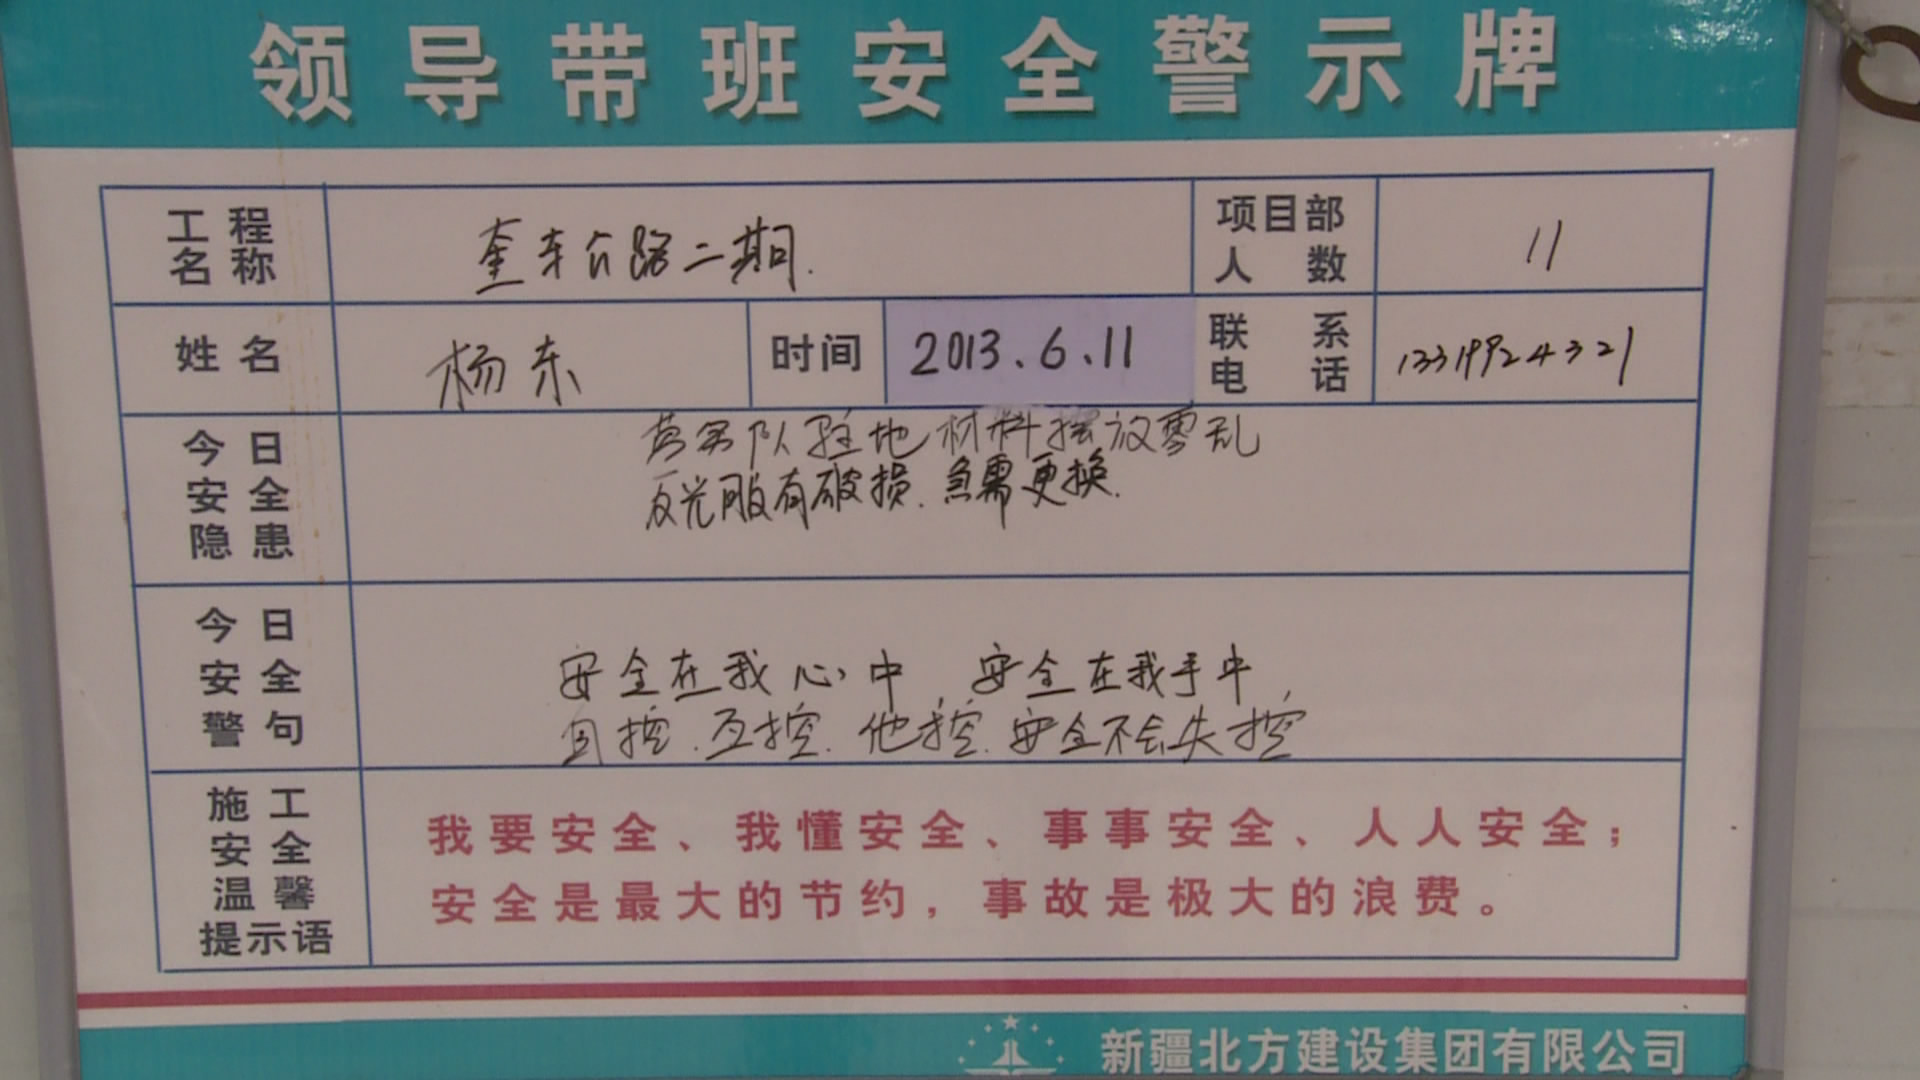 领导带班安全警示牌
工程名称
奎车公路二期.
项目部人数
11
姓名
杨东
时间
2013.6.11
联系电话
13319924321
今日安全隐患
劳务队驻地材料摆放零乱
反光服有破损.急需更换.
今日安全警句
安全在我心中,安全在我手中
自控.互控.他控.安全不会失控
施工安全温馨提示语
我要安全、我懂安全、事事安全、人人安全；
安全是最大的节约，事故是极大的浪费。
新疆北方建设集团有限公司